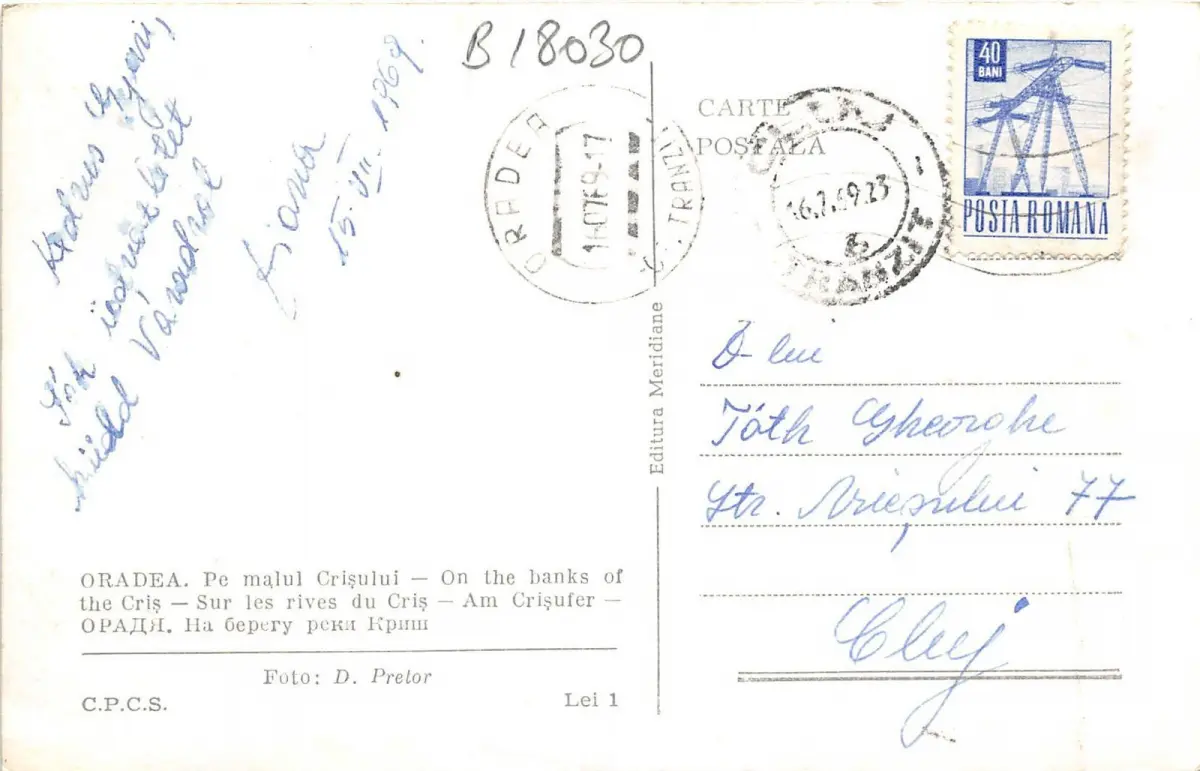 B 18030
Kedves Gyuri,
Sok üdvözletet
küld Váradról
Diana
15. VII. 1969.
ORADEA. Pe malul Crișului — On the banks of
the Criș — Sur les rives du Criș — Am Crișufer —
ОРАДЯ. На берегу реки Криш
Foto: D. Pretor
C.P.C.S. Lei 1
Editura Meridiane
CARTE
POSTALA
ORADEA
TRANZIT
CLUJ
16.7.69.23
TRANZIT
40
BANI
POSTA ROMANA
D-lui
Tóth Gheorghe
Str. Arieșului 77
Cluj